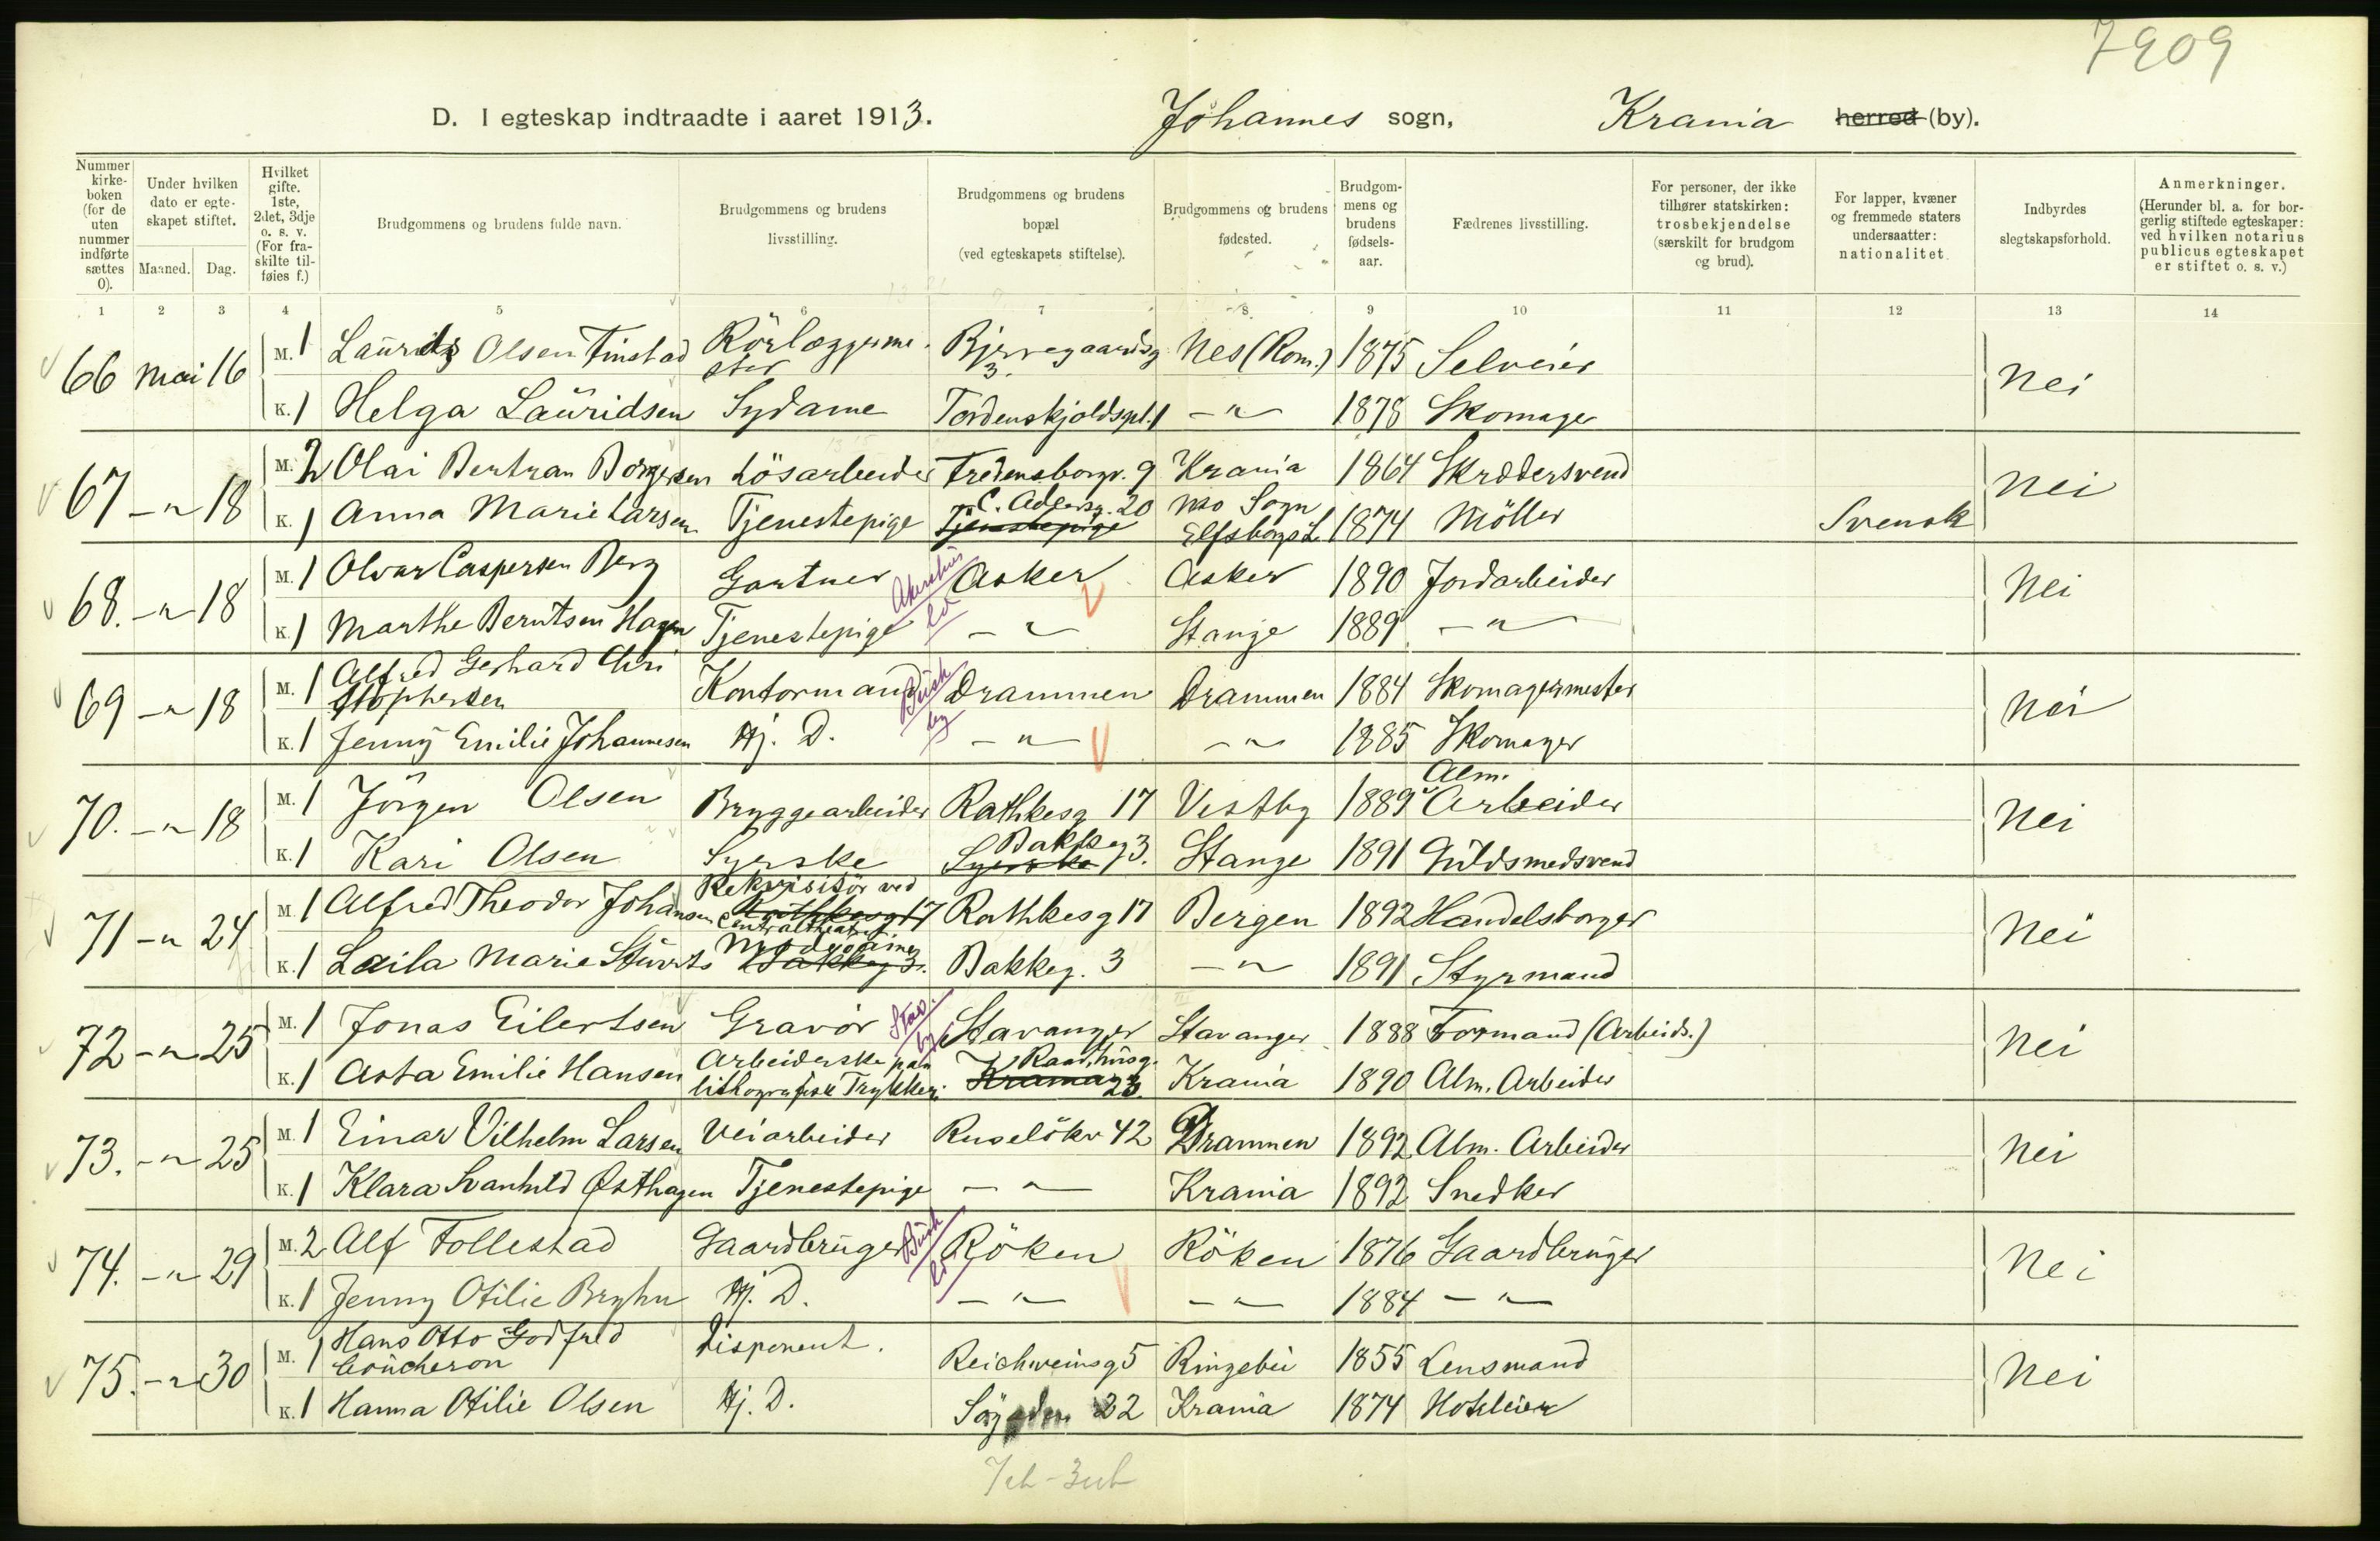 7909
D. I egteskap indtraadte i aaret 1913. Johannes sogn, Krania herred (by).
Nummer kirke-boken (for de uten nummer indførte sættes 0).
Under hvilken dato er egte-skapet stiftet.
Maaned. Dag.
Hvilket gifte. 1ste, 2det, 3dje o. s. v. (For fra-skilte til-føies f.)
Brudgommens og brudens fulde navn.
Brudgommens og brudens livsstilling.
Brudgommens og brudens bopæl (ved egteskapets stiftelse).
Brudgommens og brudens fødested.
Brudgom-mens og brudens fødsels-aar.
Fædrenes livsstilling.
For personer, der ikke tilhører statskirken: trosbekjendelse (særskilt for brudgom og brud).
For lapper, kvæner og fremmede staters undersaatter: nationalitet.
Indbyrdes slegtskapsforhold.
Anmerkninger. (Herunder bl. a. for bor-gerlig stiftede egteskaper: ved hvilken notarius publicus egteskapet er stiftet o. s. v.)
1 2 3 4 5 6 7 8 9 10 11 12 13 14
66 Mai 16 M. 1 Lauritz Olsen Finstad Rörlæggermester Bjerregaardsg 3. Nes (Rom.) 1875 Selveier Nei
K. 1 Helga Lauridsen Sydame Tordenskjoldspl. 1 -"- 1878 Skomager
67 -"- 18 M. 2 Olai Bertran Borgersen Lösarbeider Fredensborgv. 9 Krania 1864 Skræddersvend Nei
K. 1 Anna Marie Larsen Tjenestepige Tjenestepige C. Adlersg. 20 Sogn Elfsborgs L 1874 Möller Svensk
68. -"- 18 M. 1 Olvar Caspersen Berg Gartner Akershus Asker Asker 1890 Jordarbeider Nei
K. 1 Marthe Berntsen Hagen Tjenestepige -"- Stange 1889 -"-
69 -"- 18 M. 1 Alfred Gerhard Christophersen Kontormand Busk by Drammen Drammen 1884 Skomagermester Nei
K. 1 Jenny Emilie Johannesen Hj. D. -"- -"- 1885 Skomager
70. -"- 18 M. 1 Jörgen Olsen Bryggearbeider Rathkesg 17 Vestby 1889 Alm. Arbeider Nei
K. 1 Kari Olsen Syerske Syerske Bakkeg 3. Stange 1891 Guldsmedsvend
71 -"- 24 M. 1 Alfred Theodor Johansen Rekvisitör ved Centraltheatret Rathkesg 17 Rathkesg 17 Bergen 1892 Handelsborger Nei
K. 1 Laila Marie Stürts Bakkeg 3. Bakkeg. 3 -"- 1891 Styrmand
72 -"- 25 M. 1 Jonas Eilertsen Gravör Stav. by Stavanger Stavanger 1888 Formand (Arbeids.) Nei
K. 1 Asta Emilie Hansen Arbeiderske paa lithografisk Trykkeri Krania Raadhusg. 23. Krania 1890 Alm. Arbeider
73. -"- 25 M. 1 Einar Vilhelm Larsen Veiarbeider Ruselökv 42 Drammen 1892 Alm. Arbeider Nei
K. 1 Klara Svanhild Østhagen Tjenestepige -"- Krania 1892 Snedker
74. -"- 29 M. 2 Alf Follestad Gaardbruger Busk Röken Röken 1876 Gaardbruger Nei
K. 1 Jenny Otilie Bryhn Hj. D. -"- -"- 1884 -"-
75. -"- 30 M. 1 Hans Otto Godfred Coucheron Disponent. Reichweinsg 5 Ringebu 1855 Lensmand Nei
K. 1 Hanna Otilie Olsen Hj. D. 22 Krania 1874 Hoteleier